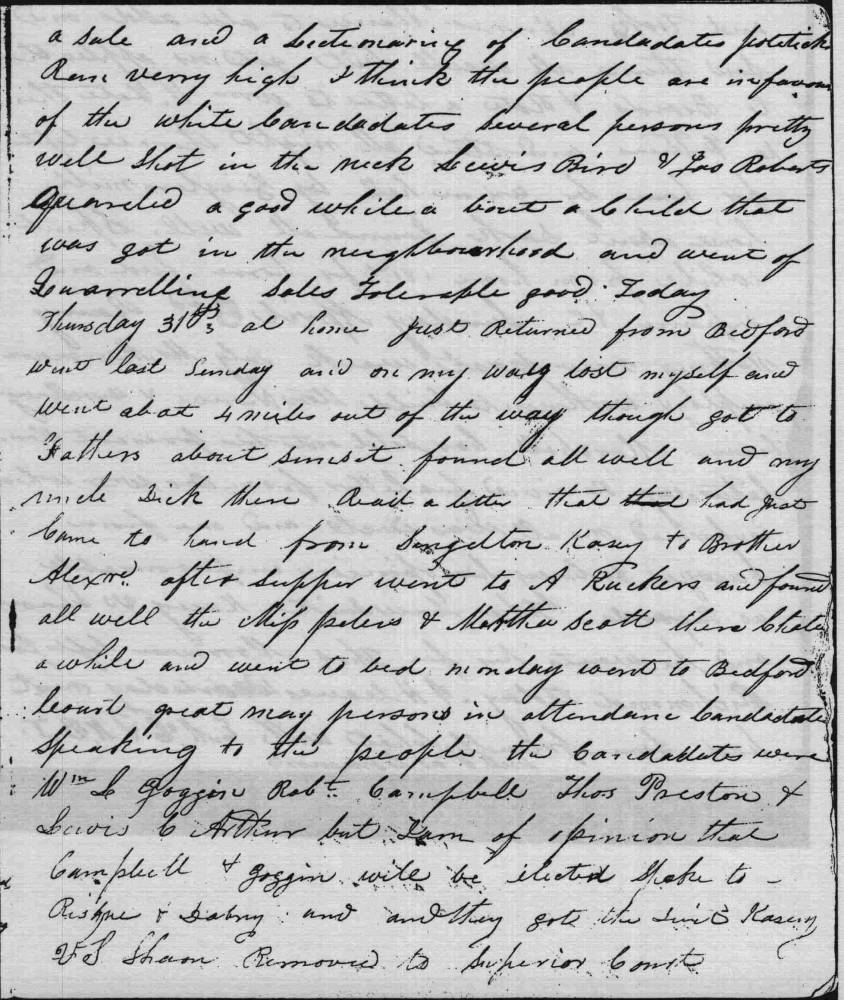 a sale and a Lectionaring of Candadates politick
Run verry high I think the people are in favour
of the white Candadates Several persons pretty
well Shot in the neck Lewis Bird & Jas Roberts
Quareled a good while a bout a Child that
was got in the neighbourhood and went of
Quarrelling Sales Tolerable good Today
Thursday 31st at home Just Returned from Bedford
went last Sunday and on my way lost myself and
went abat 4 miles out of the way though got to
Fathers about Sunset found all well and my
uncle Dick there Read a letter that that had Just
Came to hand from Singelton Kasey to Brother
Alexnd. after Supper went to A Ruckers and found
all well the Miss & Matthew Scott there Chated
a while and went to bed monday went to Bedford
Court great may persons in attendanc Candadates
Speaking to the people the Candadates were
Wm L Goggin Robt. Campbell Thos Preston &
Lewis C Arthur but I am of opinion that
Campbell & Goggin will be elected Spoke to -
Risque & Dabny and and they got the Kasey
VS Shaon Removed to Superior Court